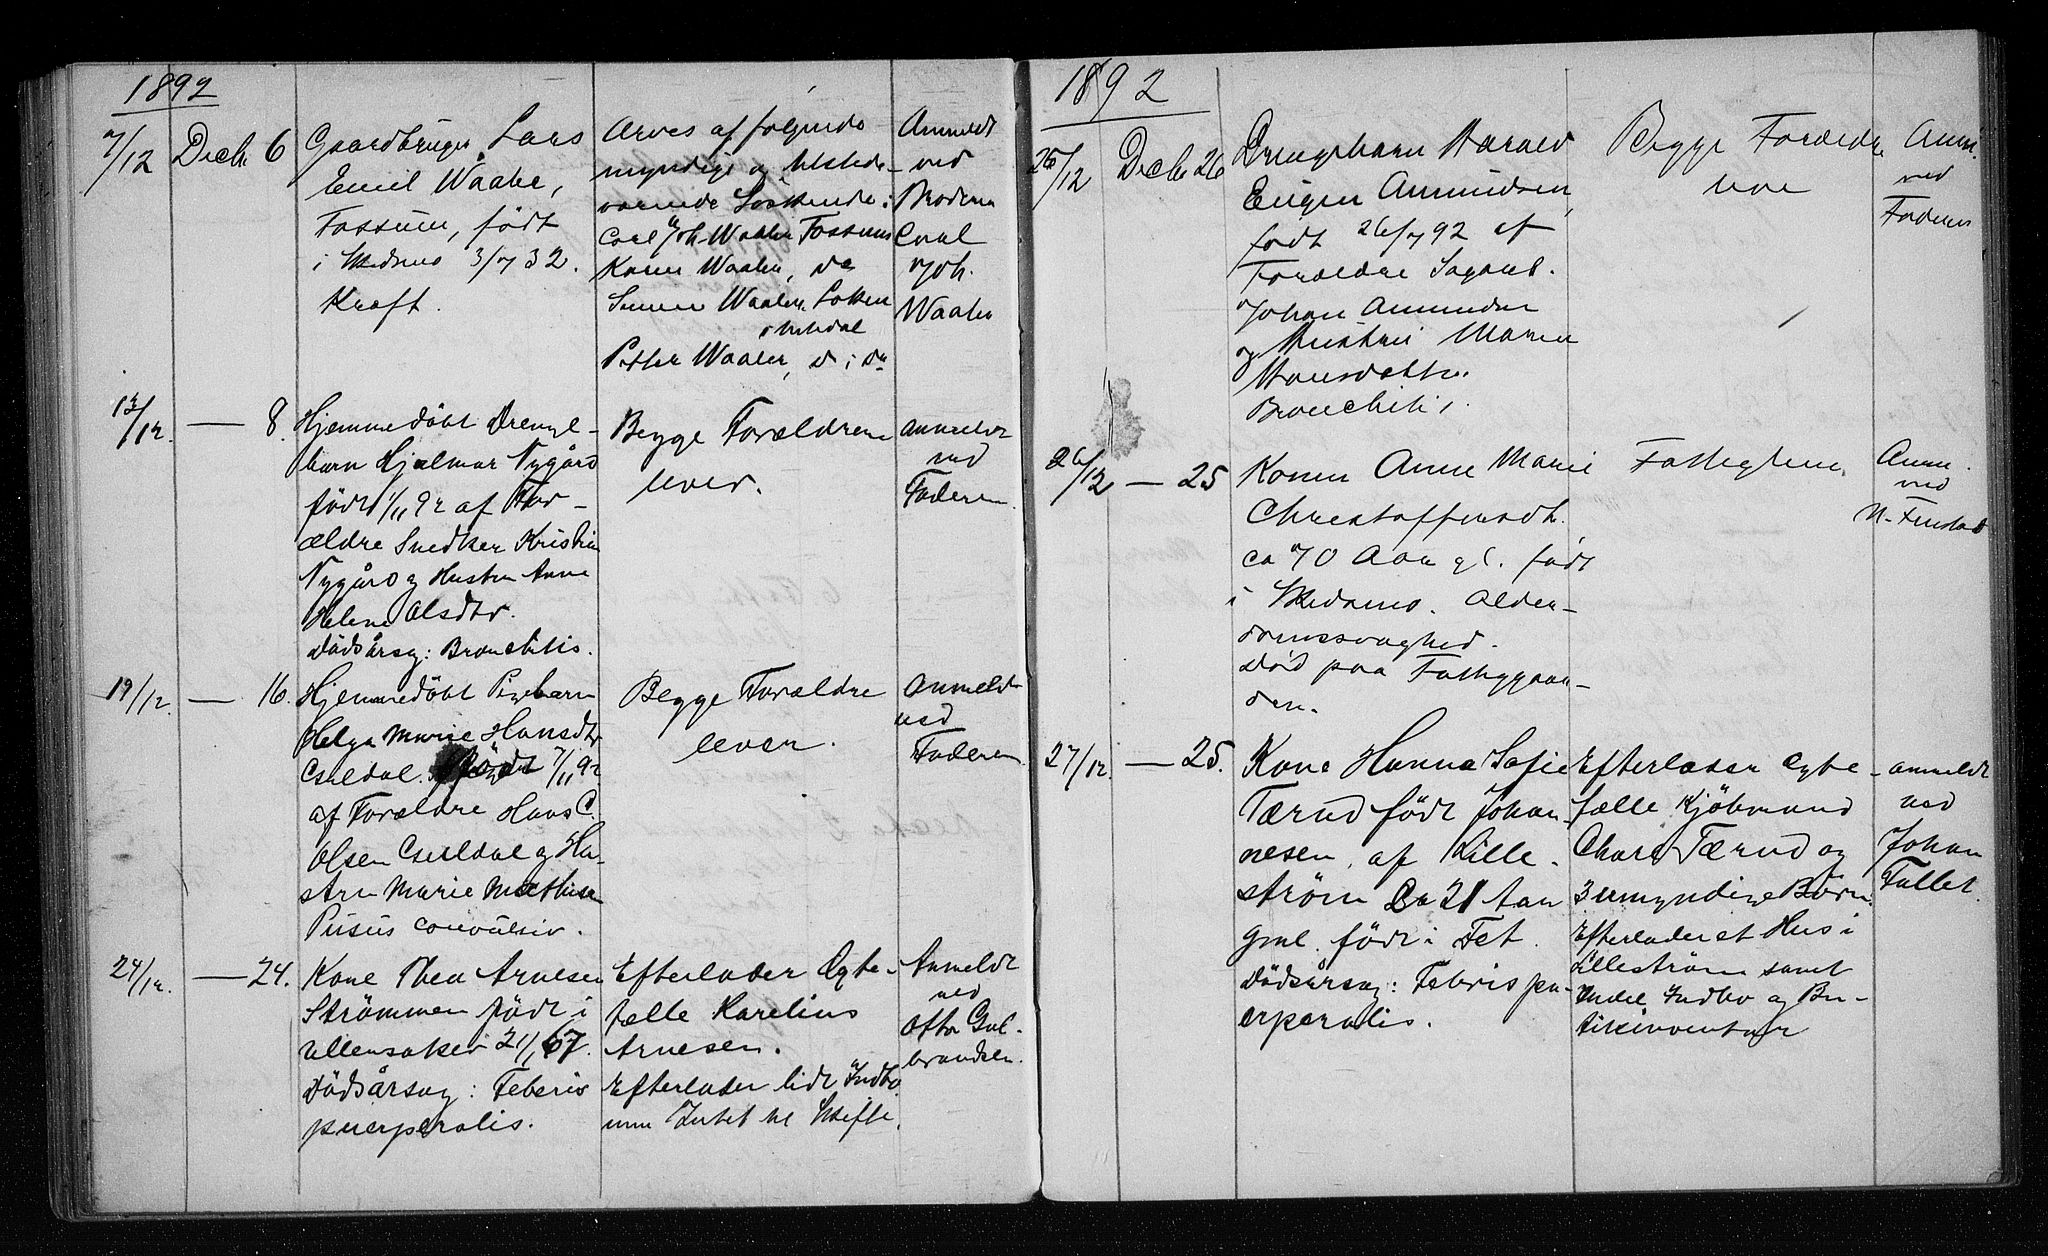 1892
7/12 Decbr 6 Gaardbruger Lars
Emil Waaler,
Fossum, født
i Skedsmo 3/7 32.
Kræft.
Arves af følgende
myndige og tilstede-
værende Søskende:
Carl Joh. Waaler Fossum
Karen Waaler, do
Simen Waaler, Løken
Peder Waaler, d i do
Anmeldt
ved
Broderen
Carl
Joh.
Waaler
13/12. — 8. Hjemmedöbt Drenge-
barn Hjalmar Nygård
födt 1/11 92 af For-
ældre Snedker Kristian
Nygård og Hustru Anne
Helene Olsdtr.
Dödsårsag: Bronchitis.
Begge Forældrene
lever.
Anmeldt
ved
Faderen.
19/12. — 16. Hjemmedöbt Pigebarn
Helga Marie Hansdtr
födt 7/11 92
af Forældre Hans C.
Olsen og Hu-
stru Marie Mathisen
convulsiv.
Begge Forældre
lever.
Anmeldt
ved
Faderen
24/12. — 24. Kone Thea Arnesen
Strömmen födt i
Ullensaker 21/1 67.
Dödsårsag: Febris
puerperalis.
Efterlader Ægte-
fælle Karelius
Arnesen.
Efterlader lidt Indbo
men Intet til Skifte.
Anmeldt
ved
Otto Gul-
brandsen.
1892
26/12 Decbr 26 Drengebarn Harald
Eugen Amundsen,
født 26/7 92 af
Forældre Sagarb.
Johan Amundsen
og Hustru Maren
Hansdatter.
Bronchitis.
Begge Forældre
leve
Anm.
ved
Faderen
26/12 — 25 Konen Anne Marie
Christoffersdt.
ca 70 Aar gl. født
i Skedsmo. Alder-
domssvaghed.
Død paa Fattiggaar-
den.
Fattiglem.
Anm.
ved
N. Finstad
27/12. — 25. Kone Hanna Sofie
Tærud født Johan-
nesen, af Lille-
strøm ca 21 Aar
gml. født i Fet.
Dödsårsag: Febris pu-
erperalis.
Efterlader Ægte-
fælle Kjöbmand
Charl Tærud og
3 umyndige Børn.
Efterlader et Hus i
Lilleström samt
Indbo og Bu-
tikinventar
Anmeldt
ved
Johan
Fallet.